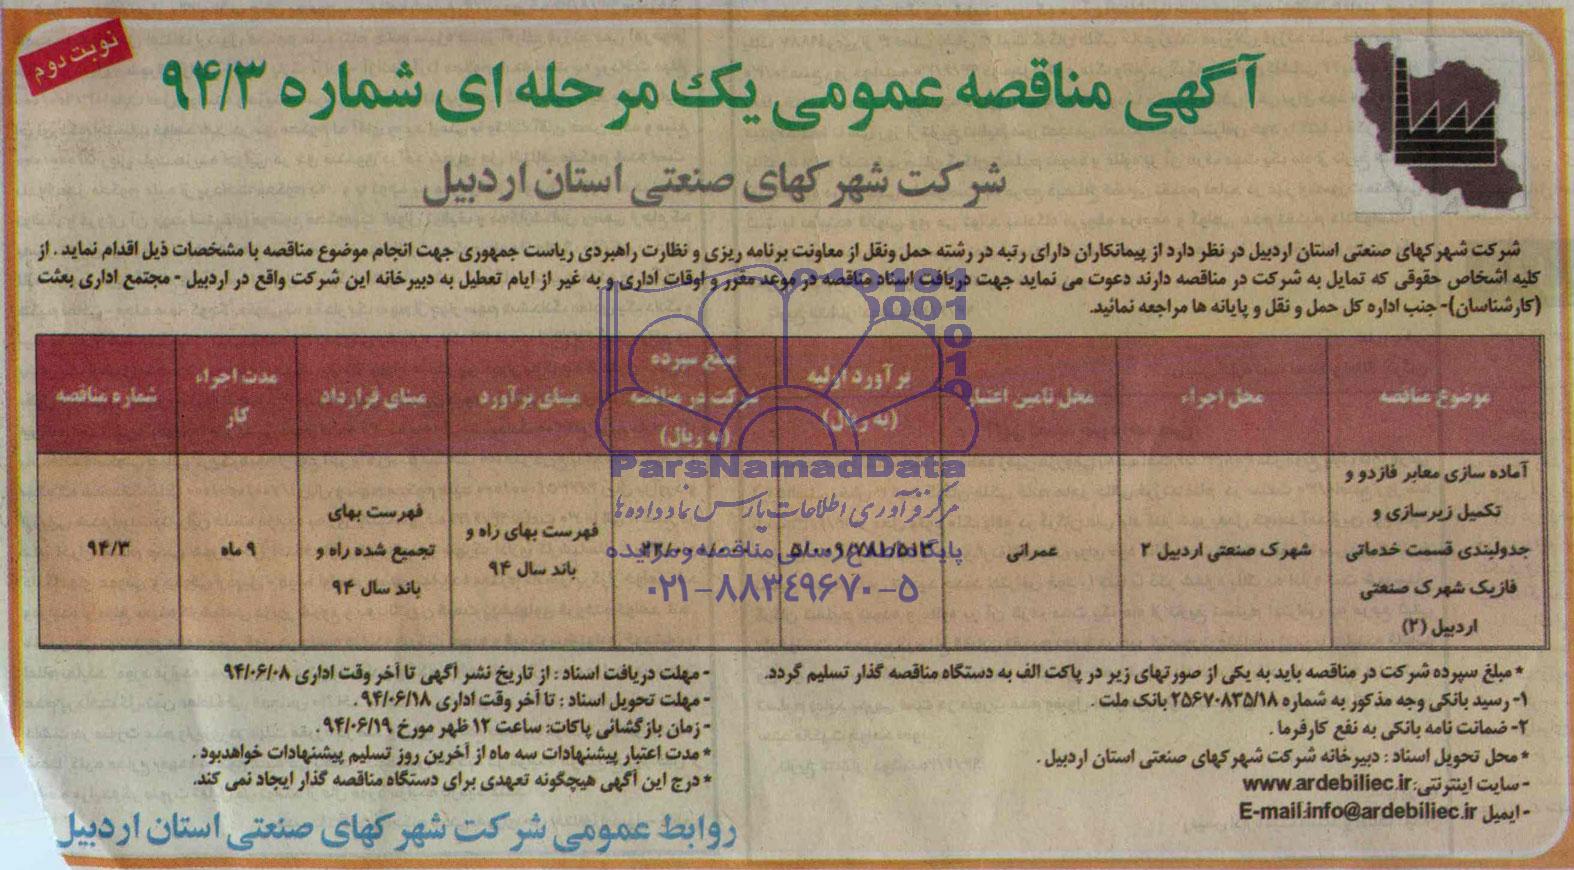 نوبت دوم
آگهی مناقصه عمومی یک مرحله ای شماره ۹۴/۳
شرکت شهرکهای صنعتی استان اردبیل
شرکت شهرکهای صنعتی استان اردبیل در نظر دارد از پیمانکاران دارای رتبه در رشته حمل ونقل از معاونت برنامه ریزی و نظارت راهبردی ریاست جمهوری جهت انجام موضوع مناقصه با مشخصات ذیل اقدام نماید . از
کلیه اشخاص حقوقی که تمایل به شرکت در مناقصه دارند دعوت می نماید جهت دریافت اسناد مناقصه در موعد مقرر و اوقات اداری و به غیر از ایام تعطیل به دبیرخانه این شرکت واقع در اردبیل - مجتمع اداری بعثت
(کارشناسان)- جنب اداره کل حمل و نقل و پایانه ها مراجعه نمائید.
موضوع مناقصه
محل اجراء
محل تامین اعتبار
برآورد اولیه
(به ریال)
مبلغ سپرده
شرکت در مناقصه
(به ریال)
مبنای برآورد
مبنای قرارداد
مدت اجراء
کار
شماره مناقصه
آماده سازی معابر فازدو و
تکمیل زیرسازی و
جدولبندی قسمت خدماتی
فازیک شهرک صنعتی
اردبیل (۲)
شهرک صنعتی اردبیل ۲
عمرانی
فهرست بهای راه و
باند سال ۹۴
فهرست بهای
تجمیع شده راه و
باند سال ۹۴
۹ ماه
۹۴/۳
ParsNamadData
مرکز فرآوری اطلاعات پارس نماد داده ها
پایگاه اطلاع رسانی مناقصه و مزایده
۰۲۱-۸۸۳۴۹۶۷۰-۵
* مبلغ سپرده شرکت در مناقصه باید به یکی از صورتهای زیر در پاکت الف به دستگاه مناقصه گذار تسلیم گردد.
۱- رسید بانکی وجه مذکور به شماره ۲۵۶۷۰۸۳۵/۱۸ بانک ملت .
۲- ضمانت نامه بانکی به نفع کارفرما .
* محل تحویل اسناد : دبیرخانه شرکت شهرکهای صنعتی استان اردبیل .
- سایت اینترنتی: www.ardebiliec.ir
- ایمیل E-mail:info@ardebiliec.ir
- مهلت دریافت اسناد : از تاریخ نشر آگهی تا آخر وقت اداری ۹۴/۰۶/۰۸
- مهلت تحویل اسناد : تا آخر وقت اداری ۹۴/۰۶/۱۸ .
- زمان بازگشائی پاکات: ساعت ۱۲ ظهر مورخ ۹۴/۰۶/۱۹ .
* مدت اعتبار پیشنهادات سه ماه از آخرین روز تسلیم پیشنهادات خواهدبود .
* درج این آگهی هیچگونه تعهدی برای دستگاه مناقصه گذار ایجاد نمی کند.
روابط عمومی شرکت شهرکهای صنعتی استان اردبیل